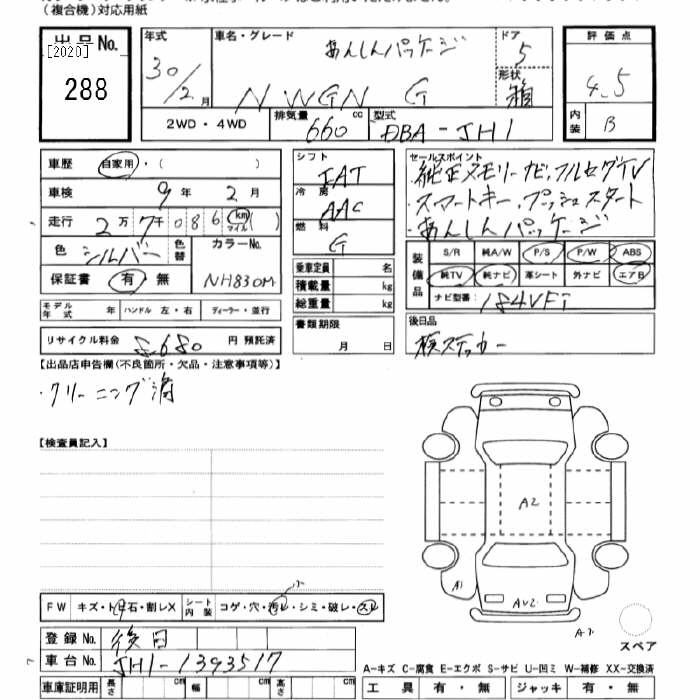 (複合機)対応用紙
出品No.
[2020]
288
年式
30/2月
車名・グレード
あんしんパッケージ
N WGN G
ドア
5
形状
箱
評価点
4.5
内装
B
2WD・4WD
排気量
660 cc
型式
DBA-JH1
車歴
自家用・( )
車検
9年2月
走行
2万7千086 km マイル( )
色
シルバー
色替
カラーNo.
NH830M
保証書
有・無
シフト
IAT
冷房
AAC
燃料
G
乗車定員 名
積載量 kg
総重量 kg
セールスポイント
純正メモリーナビ,フルセグTV
・スマートキー,プッシュスタート
・あんしんパッケージ
装備品
S/R 純A/W P/S P/W ABS
純TV 純ナビ 革シート 外ナビ エアB
ナビ型番: 184VFi
モデル年式 年 ハンドル 左・右 ディーラー・並行
リサイクル料金 8,680 円 預託済
書類期限
月 日
後日品
検ステッカー
【出品店申告欄(不良箇所・欠品・注意事項等)】
・クリーニング済
【検査員記入】
A2
A1
AU2
A2
スペア
FW キズ・ト石・割レX シート内装 コゲ・穴・汚レ・シミ・破レ・スレ
小
登録No. 後日
車台No. JH1-1393517
車庫証明用 長さ cm 幅 cm 高さ cm
A-キズ C-腐食 E-エクボ S-サビ U-凹ミ W-補修 XX-交換済
工具 有・無 ジャッキ 有・無